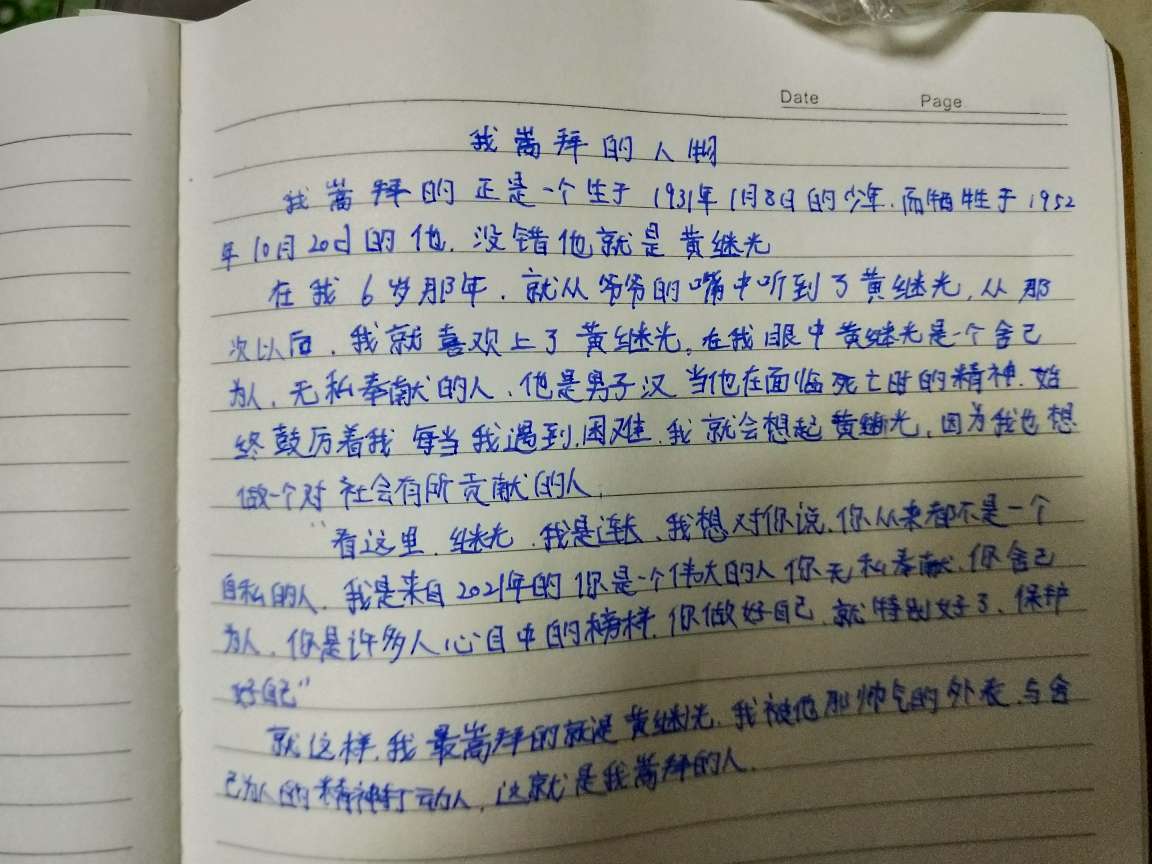 Date Page
我嵩拜的人物
我嵩拜的 正是一个生于 1931年1月8日的少年.而牺牲于1952
年10月20日的他.没错他就是黄继光
在我6岁那年.就从爷爷的嘴中听到了黄继光.从那
次以后.我就喜欢上了黄继光。在我眼中黄继光是一个舍己
为人.无私奉献的人.他是男子汉 当他在面临死亡时的精神.始
终鼓厉着我 每当我遇到困难.我就会想起黄继光.因为我也想
做一个对社会有所贡献的人.
"看这里.继光.我是连长、我想对你说.你从来都不是一个
自私的人.我是来自2021年的 你是一个伟大的人 你无私奉献.你舍己
为人.你是许多人心目中的榜样.你做好自己.就特别好了、保护
好自己"
就这样.我最嵩拜的就是黄继光.我被他那帅气的外表.与舍
己为人的精神打动人.这就是我嵩拜的人.